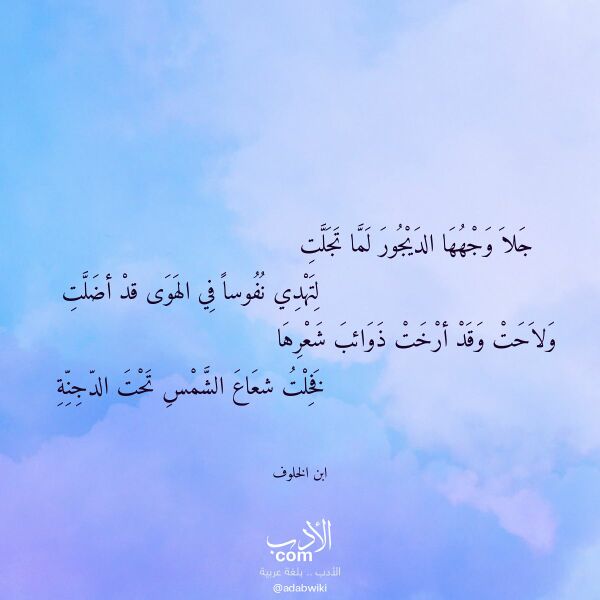 جَلاَ وَجْهُهَا الدَيْجُورَ لَمَّا تَجَلَّتِ
لِتَهْدِي نُفُوساً فِي الهَوَى قدْ أضَلَّتِ
وَلاَحَتْ وَقَدْ أرْخَتْ ذَوَائبَ شَعْرِهَا
فَخِلْتُ شعَاعَ الشَّمْسِ تَحْتَ الدّجِنِّةِ
ابن الخلوف
الأدب
com
الأدب .. بلغة عربية
@adabwiki